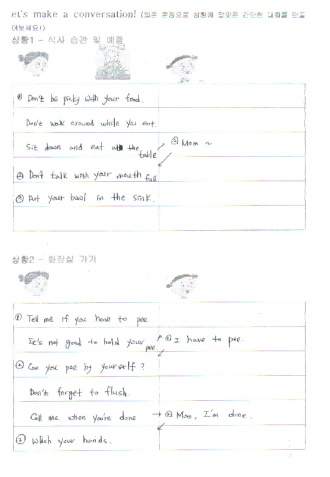 et's make a conversation! (배운 문장으로 상황에 알맞은 간단한 대화를 만들
어보세요!)
상황1 - 식사 습관 및 예절
① Don't be picky with your food.
Don't walk around while you eat.
Sit down and eat at the table
② Mom ~
Don't talk with your mouth full
Put your bowl in the sink.
상황2 - 화장실 가기
① Tell me if you have to pee
It's not good to hold your pee.
② I have to pee.
Can you pee by yourself?
Don't forget to flush.
Call me when you're done
④ Mom, I'm done.
Wash your hands.